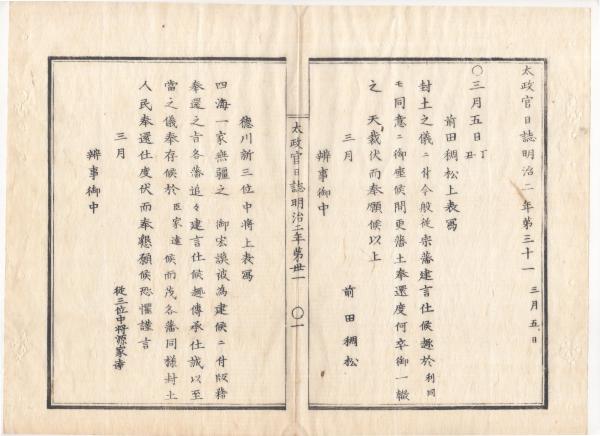 太政官日誌明治二年第三十一　三月五日
○三月五日丁丑
前田稠松上表寫
封土之儀ニ付今般従宗藩建言仕候趣於利同
モ同意ニ御座候間更藩土奉還度何卒御一轍
之　天裁伏而奉願候以上
三月　前田稠松
辨事御中
太政官日誌明治二年第卅一　○一
徳川新三位中将上表寫
四海一家無疆之　御宏謨被為建候ニ付版籍
奉還之旨各藩追々建言仕候趣傳承仕誠以至
當之儀奉存候於臣家達候而茂各藩同様封土
人民奉還仕度伏而奉懇願候恐懼謹言
三月　従三位中将源家達
辨事御中